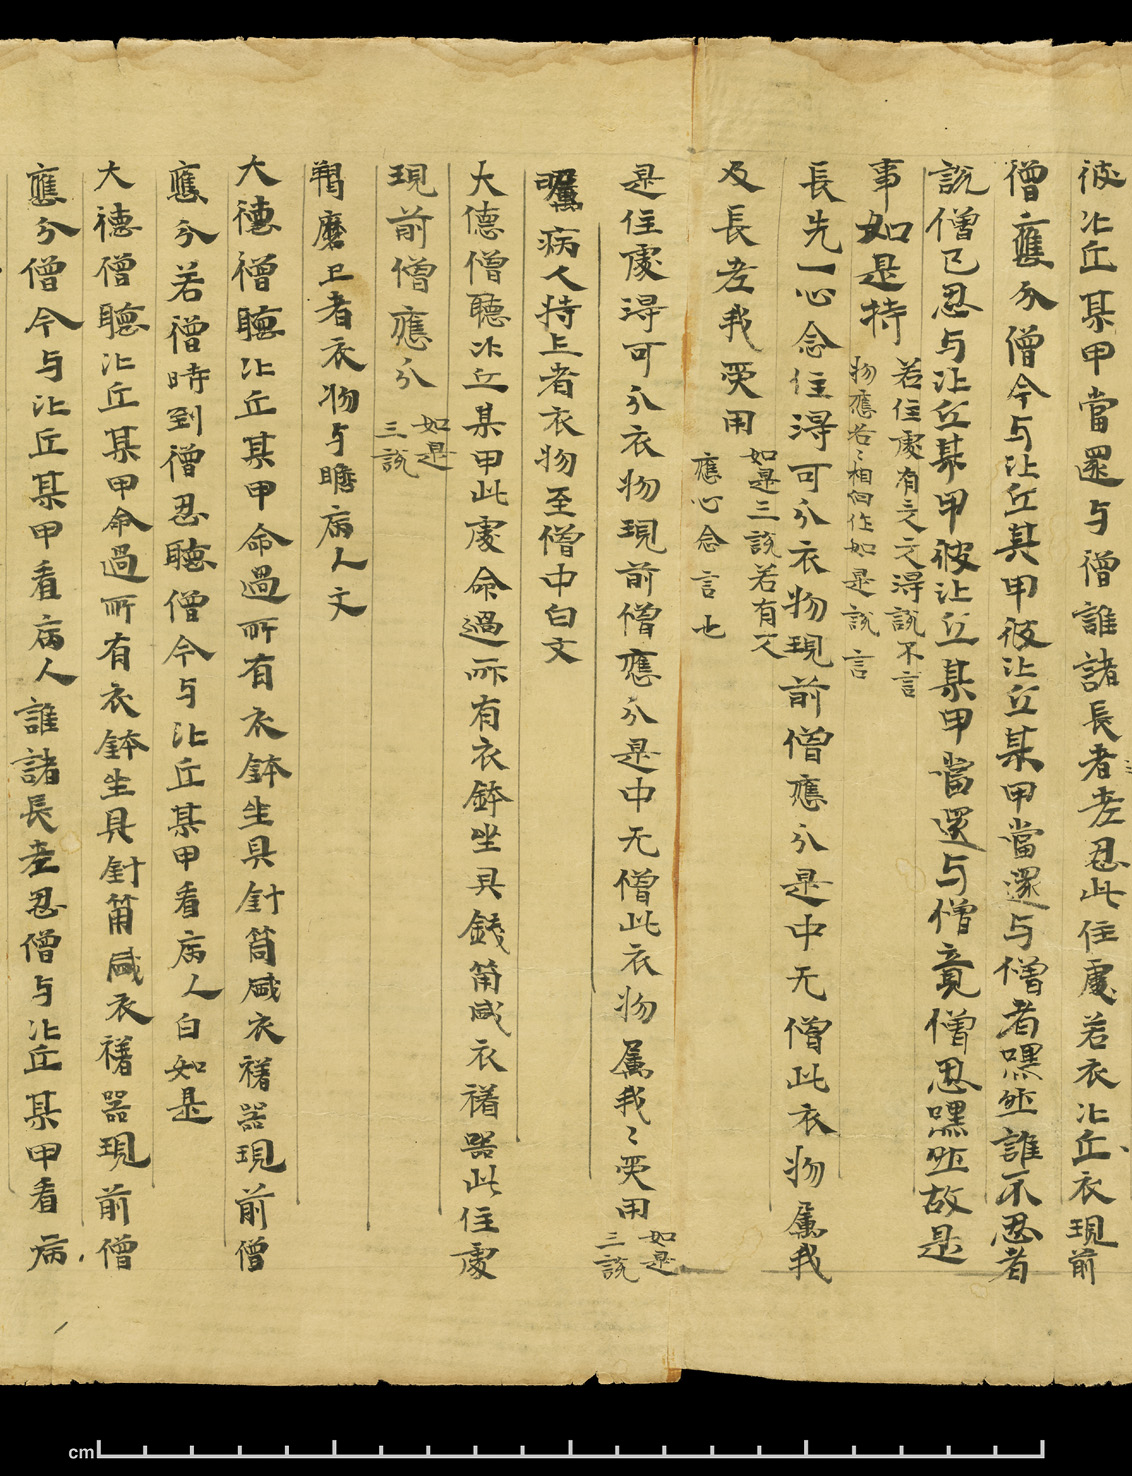 彼比丘某甲當還与僧誰諸長者老忍此住處若衣比丘衣現前
僧應分僧今与比丘其甲彼比丘某甲當還与僧者嘿然誰不忍者
說僧已忍与比丘某甲彼比丘某甲當還与僧竟僧忍嘿然故是
事如是持
若住處有之文得說不言
物應若〻相向作如是說言
長先一心念住得可分衣物現前僧應分是中无僧此衣物属我
及長老我受用
如是三說若有欠
應心念言也
是住處得可分衣物現前僧應分是中无僧此衣物属我〻受用
如是
三說
囑病人持上者衣物至僧中白文
大德僧聽比丘某甲此處命過所有衣鉢坐具銭筩咸衣䄍器此住處
現前僧應分
如是
三說
羯磨亡者衣物与瞻病人文
大德僧聽比丘某甲命過所有衣鉢坐具針筒咸衣䄍器現前僧
應分若僧時到僧忍聽僧今与比丘某甲看病人白如是
大德僧聽比丘某甲命過所有衣鉢坐具針筩咸衣䄍器現前僧
應分僧今与比丘某甲看病人誰諸長老忍僧与比丘某甲看病